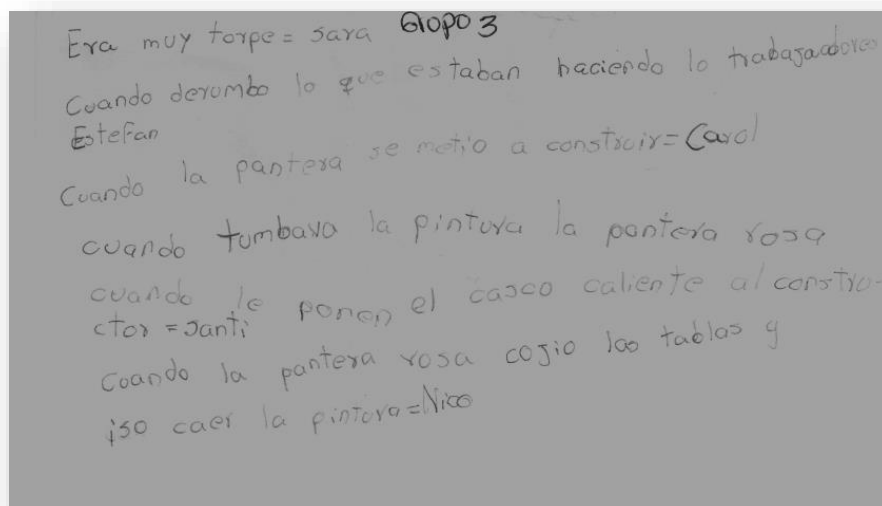 Era muy torpe = sara Glopo 3
Cuando derumbo lo que estaban haciendo lo trabajadores
Estefan
Cuando la pantera se metio a construir = Carol
cuando tumbava la pintura la pantera rosa
cuando le ponen el casco caliente al constru-
ctor = santi
Cuando la pantera rosa cojio las tablas y
iso caer la pintura = Nico